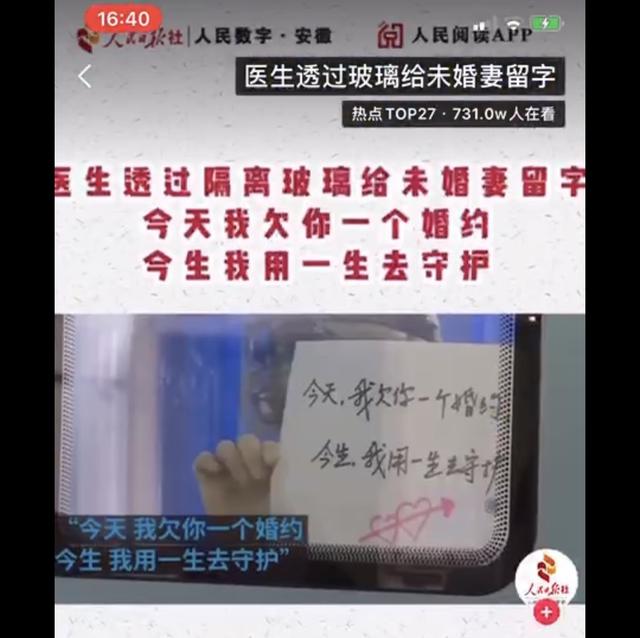 16:40
人民日报社 | 人民数字·安徽
人民阅读APP
医生透过玻璃给未婚妻留字
热点TOP27 · 731.0w人在看
医生透过隔离玻璃给未婚妻留字
今天我欠你一个婚约
今生我用一生去守护
今天，我欠你一个婚约
今生，我用一生去守护
“今天 我欠你一个婚约
今生 我用一生去守护”
人民日报社